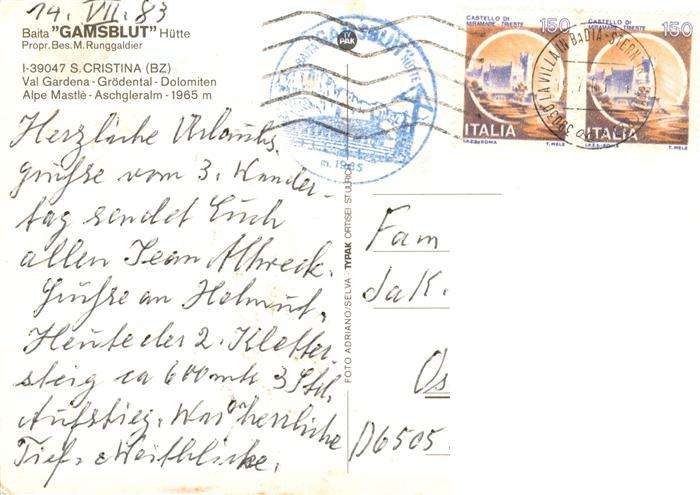 14. VII. 83
Baita "GAMSBLUT" Hütte
Propr. Bes. M. Runggaldier
I-39047 S. CRISTINA (BZ)
Val Gardena - Grödental - Dolomiten
Alpe Mastlè - Aschgleralm - 1965 m
Herzliche Urlaubs-
grüße vom 3. Wander-
tag sendet Euch
allen Jean
Grüße an Helmut,
Heute der 2. Kletter-
steig ca 600 mtr 3 Std.
Aufstieg. War herrliche
Tief- Weitblicke.
FOTO ADRIANO/SELVA - TYPAK ORTISEI ST. ULRICH
BAITA GAMSBLUT HÜTTE
m. 1965
TYPAK
CASTELLO DI
MIRAMARE - TRIESTE
150
ITALIA
I.P.Z.S. ROMA
T. MELE
CASTELLO DI
MIRAMARE - TRIESTE
150
ITALIA
I.P.Z.S. ROMA
T. MELE
LA VILLA IN BADIA - STERN
Fam
Os
D6505